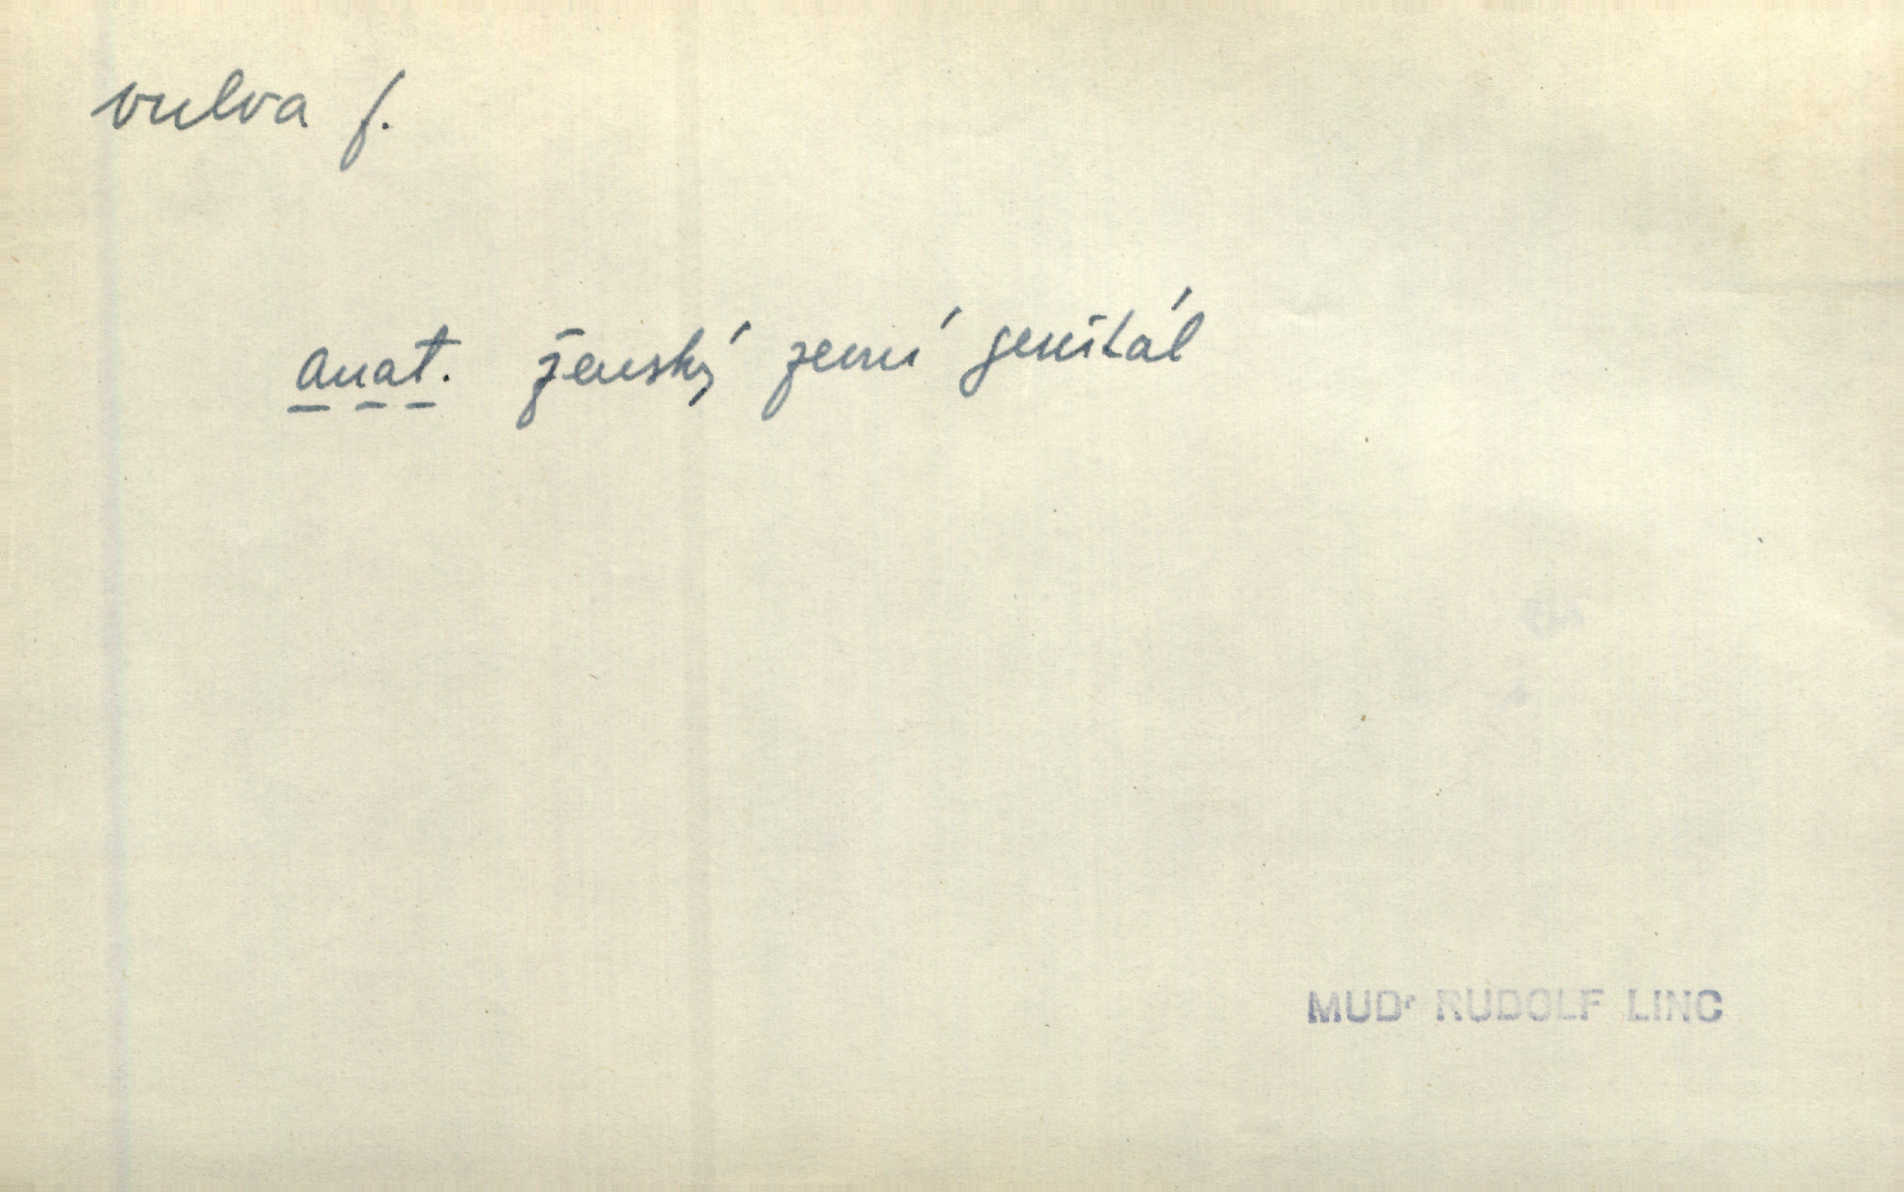 vulva f.
anat. ženský zevní genitál
MUDr RUDOLF LINC